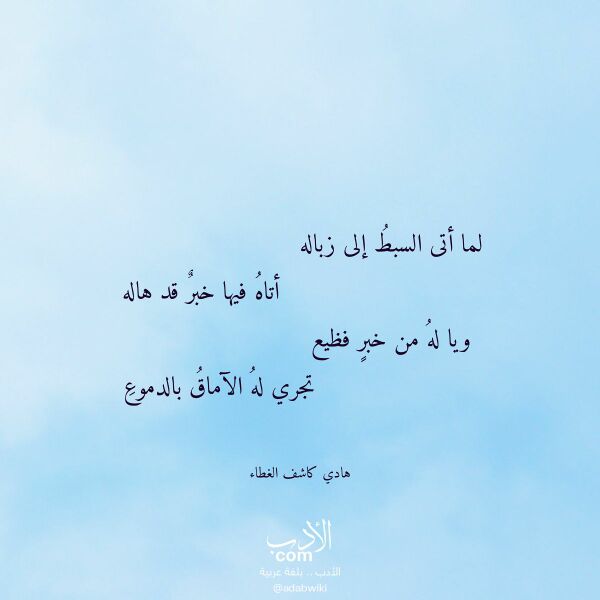 لما أتى السبطُ إلى زباله
أتاهُ فيها خبرٌ قد هاله
ويا لهُ من خبرٍ فظيع
تجري لهُ الآماقُ بالدموعِ
هادي كاشف الغطاء
الأدب
com
الأدب .. بلغة عربية
@adabwiki